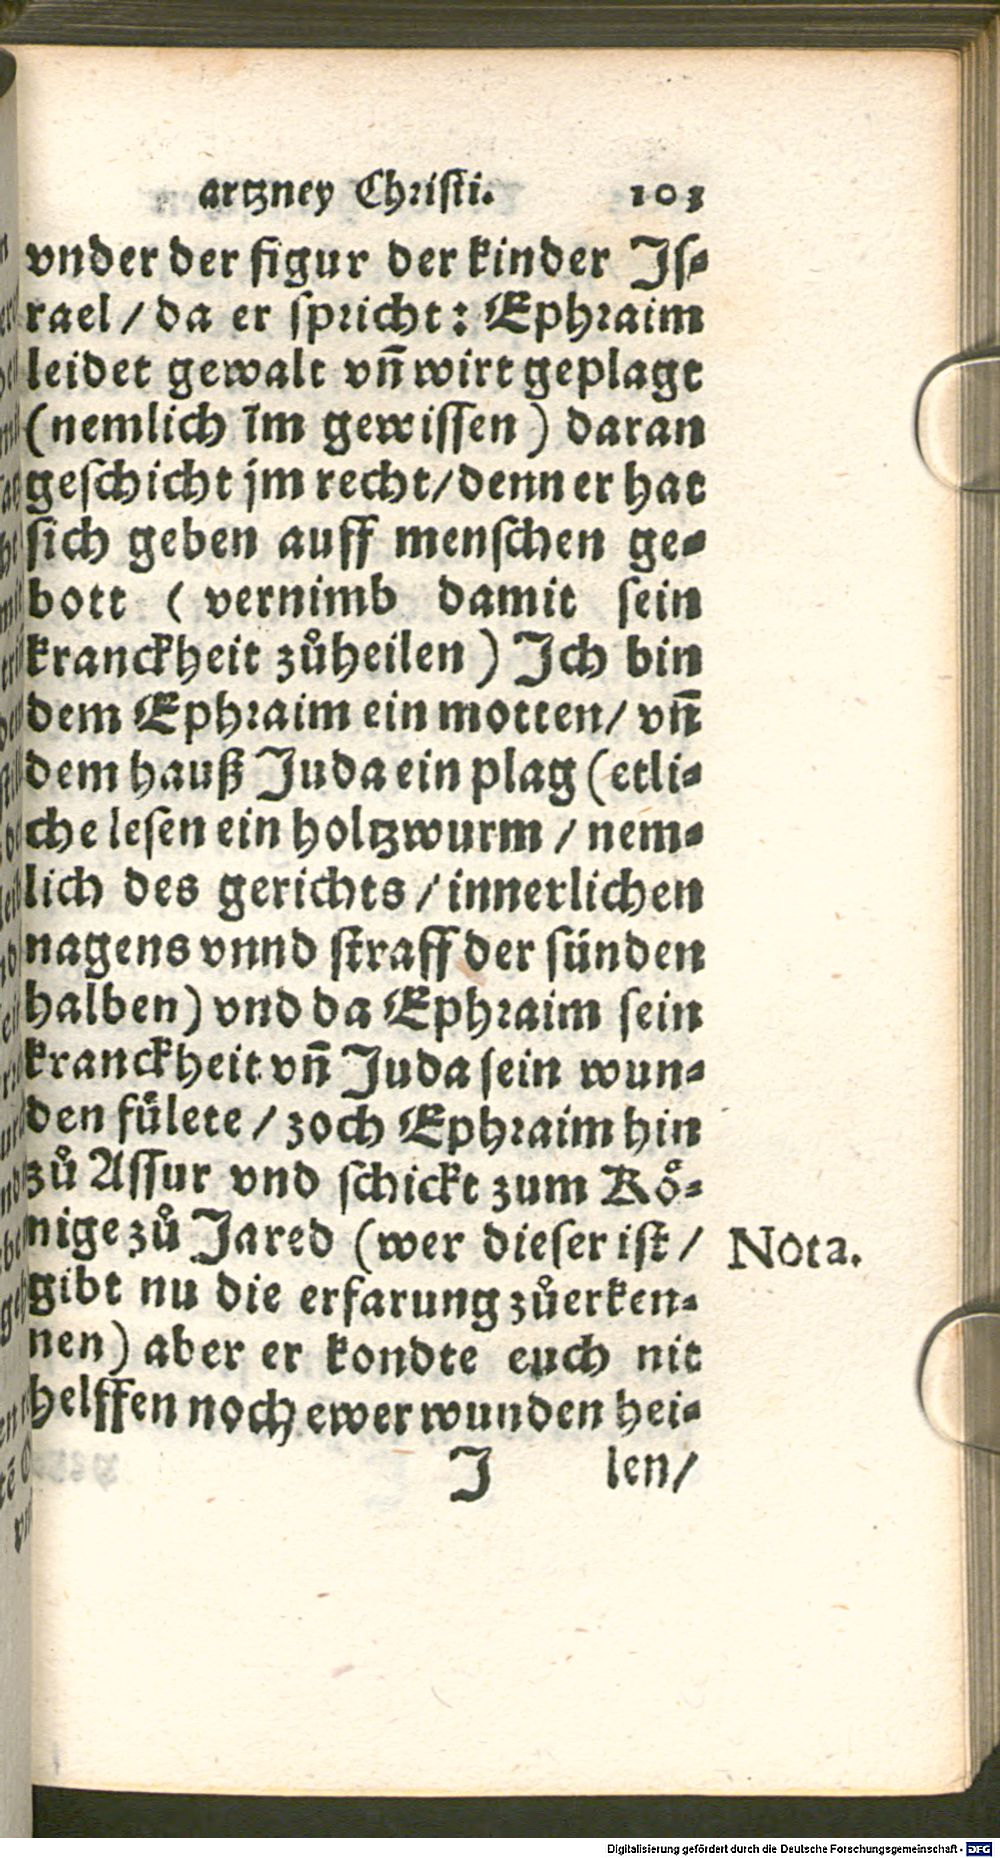 artzney Christi. 103
vnder der figur der kinder Jſ-
rael / da er ſpricht: Ephraim
leidet gewalt vn̄ wirt geplagt
(nemlich im̄ gewiſſen) daran
geſchicht jm recht/ denn er hat
ſich geben auff menſchen ge-
bott (vernimb damit ſein
kranckheit zůheilen) Jch bin
dem Ephraim ein motten/ vn̄
dem hauß Juda ein plag (etli-
che leſen ein holtzwurm / nem-
lich des gerichts / innerlichen
nagens vnnd ſtraff der ſünden
halben) vnd da Ephraim ſein
kranckheit vn̄ Juda ſein wun-
den fůlete / zoch Ephraim hin
zů Aſſur vnd ſchickt zum Kö-
nige zů Jared (wer dieſer iſt /
Nota.
gibt nu die erfarung zůerken-
nen) aber er kondte euch nit
helffen noch ewer wunden hei-
J len/
Digitalisierung gefördert durch die Deutsche Forschungsgemeinschaft - DFG